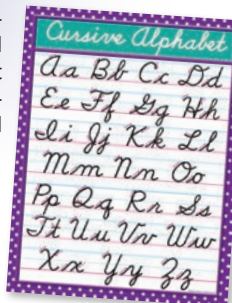 Cursive Alphabet
Aa Bb Cc Dd
Ee Ff Gg Hh
Ii Jj Kk Ll
Mm Nn Oo
Pp Qq Rr Ss
Tt Uu Vv Ww
Xx Yy Zz